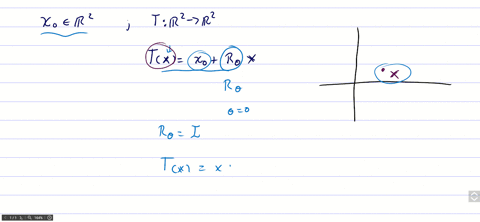 x₀ ∈ ℝ² , T: ℝ² → ℝ²
T(x) = x₀ + R_θ x
R_θ
θ = 0
R_θ = I
T(x) = x
x